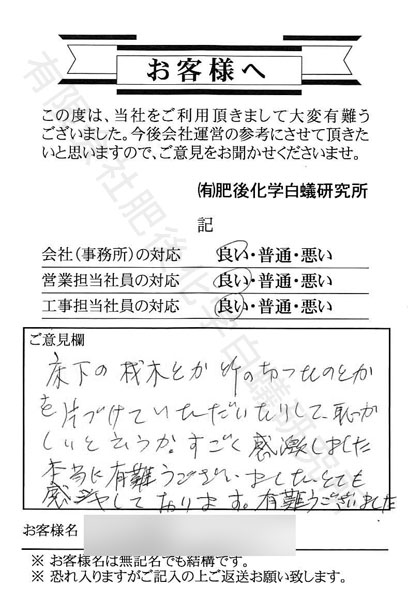 お客様へ
この度は、当社をご利用頂きまして大変有難う
ございました。今後会社運営の参考にさせて頂きた
いと思いますので、ご意見をお聞かせくださいませ。
㈲肥後化学白蟻研究所
記
会社(事務所)の対応 良い・普通・悪い
営業担当社員の対応 良い・普通・悪い
工事担当社員の対応 良い・普通・悪い
ご意見欄
床下の材木とか竹の切ったのとか
を片づけていただいたりして、恥か
しいと云うか。すごく感激しました
本当に有難うございましたとても
感シャしております。有難うございました
お客様名
※ お客様名は無記名でも結構です。
※ 恐れ入りますがご記入の上ご返送お願い致します。
有限会社肥後化学白蟻研究所